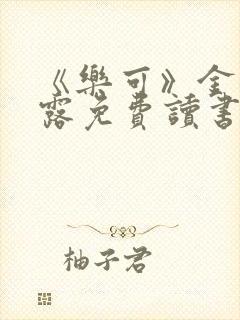 《樂可》金
露免費讀書
柚子君